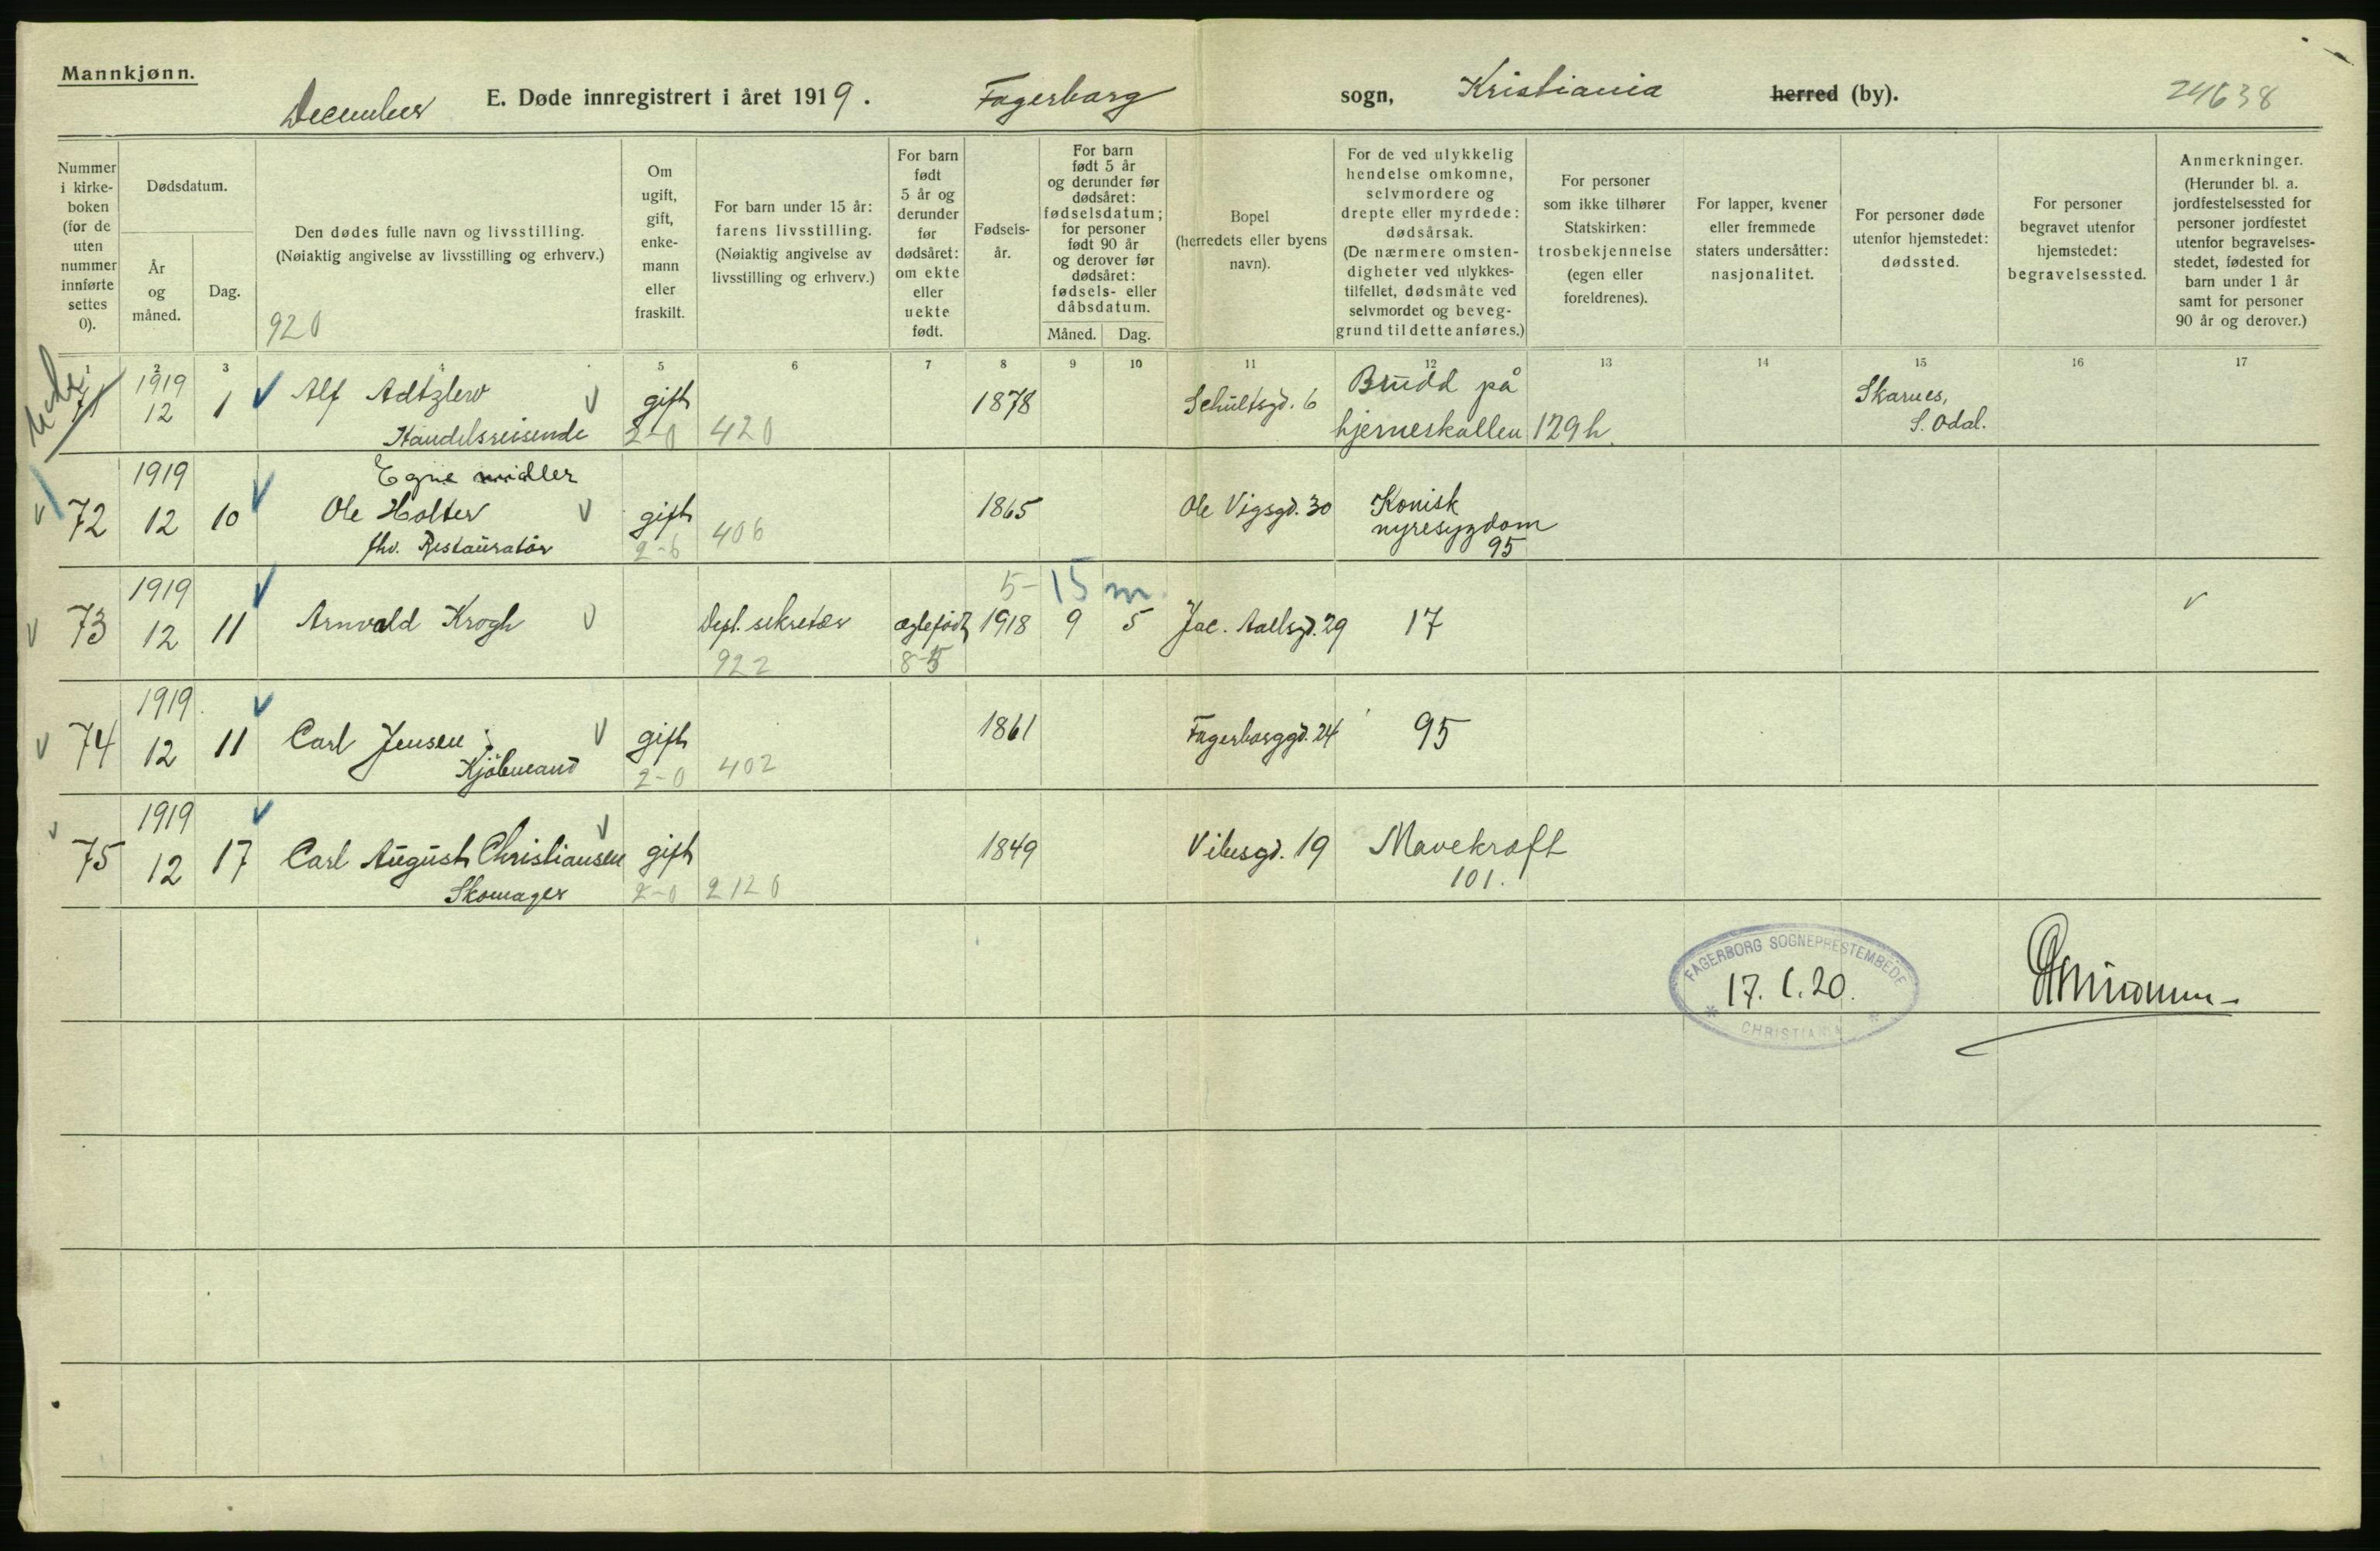 Mannkjønn.
December E. Døde innregistrert i året 1919. Fagerborg sogn, Kristiania herred (by). 24638
Nummer i kirke-boken (for de uten nummer innførte settes 0).
Dødsdatum.
År og måned.
Dag.
Den dødes fulle navn og livsstilling.
(Nøiaktig angivelse av livsstilling og erhverv.)
920
Om ugift, gift, enke-mann eller fraskilt.
For barn under 15 år: farens livsstilling. (Nøiaktig angivelse av livsstilling og erhverv.)
For barn født 5 år og derunder før dødsåret: om ekte eller uekte født.
Fødsels-år.
For barn født 5 år og derunder før dødsåret: fødselsdatum; for personer født 90 år og derover før dødsåret: fødsels- eller dåbsdatum.
Måned. Dag.
Bopel (herredets eller byens navn).
For de ved ulykkelig hendelse omkomne, selvmordere og drepte eller myrdede: dødsårsak. (De nærmere omsten-digheter ved ulykkes-tilfellet, dødsmåte ved selvmordet og beveg-grund til dette anføres.)
For personer som ikke tilhører Statskirken: trosbekjennelse (egen eller foreldrenes).
For lapper, kvener eller fremmede staters undersåtter: nasjonalitet.
For personer døde utenfor hjemstedet: dødssted.
For personer begravet utenfor hjemstedet: begravelsessted.
Anmerkninger. (Herunder bl. a. jordfestelsessted for personer jordfestet utenfor begravelses-stedet, fødested for barn under 1 år samt for personer 90 år og derover.)
1 2 3 4 5 6 7 8 9 10 11 12 13 14 15 16 17
71 1919 12 1 Alf Adtzlew gift 1878 Schultsgd. 6 Brudd på Skarnes,
Handelsreisende 2-0 420 hjerneskallen 129h. S. Odal.
Egne midler
72 1919 12 10 Ole Holter gift 406 1865 Ole Vigsgd. 30 Konisk
fhv. Restauratør 2-6 nyresygdom
95
5- 15 m.
73 1919 12 11 Arnvald Krogh Depl. sekretær ægtefødt 1918 9 5 Jac. Aallsgd. 29 17
922 8-5
74 1919 12 11 Carl Jensen gift 1861 Fagerborggd. 24 95
Kjöbmand 2-0 402
75 1919 12 17 Carl August Christiansen gift 1849 Vibesgd. 19 Mavekræft
Skomager 2-0 2120 101.
FAGERBORG SOGNEPRESTEMBEDE
17. 1. 20.
* CHRISTIANIA *